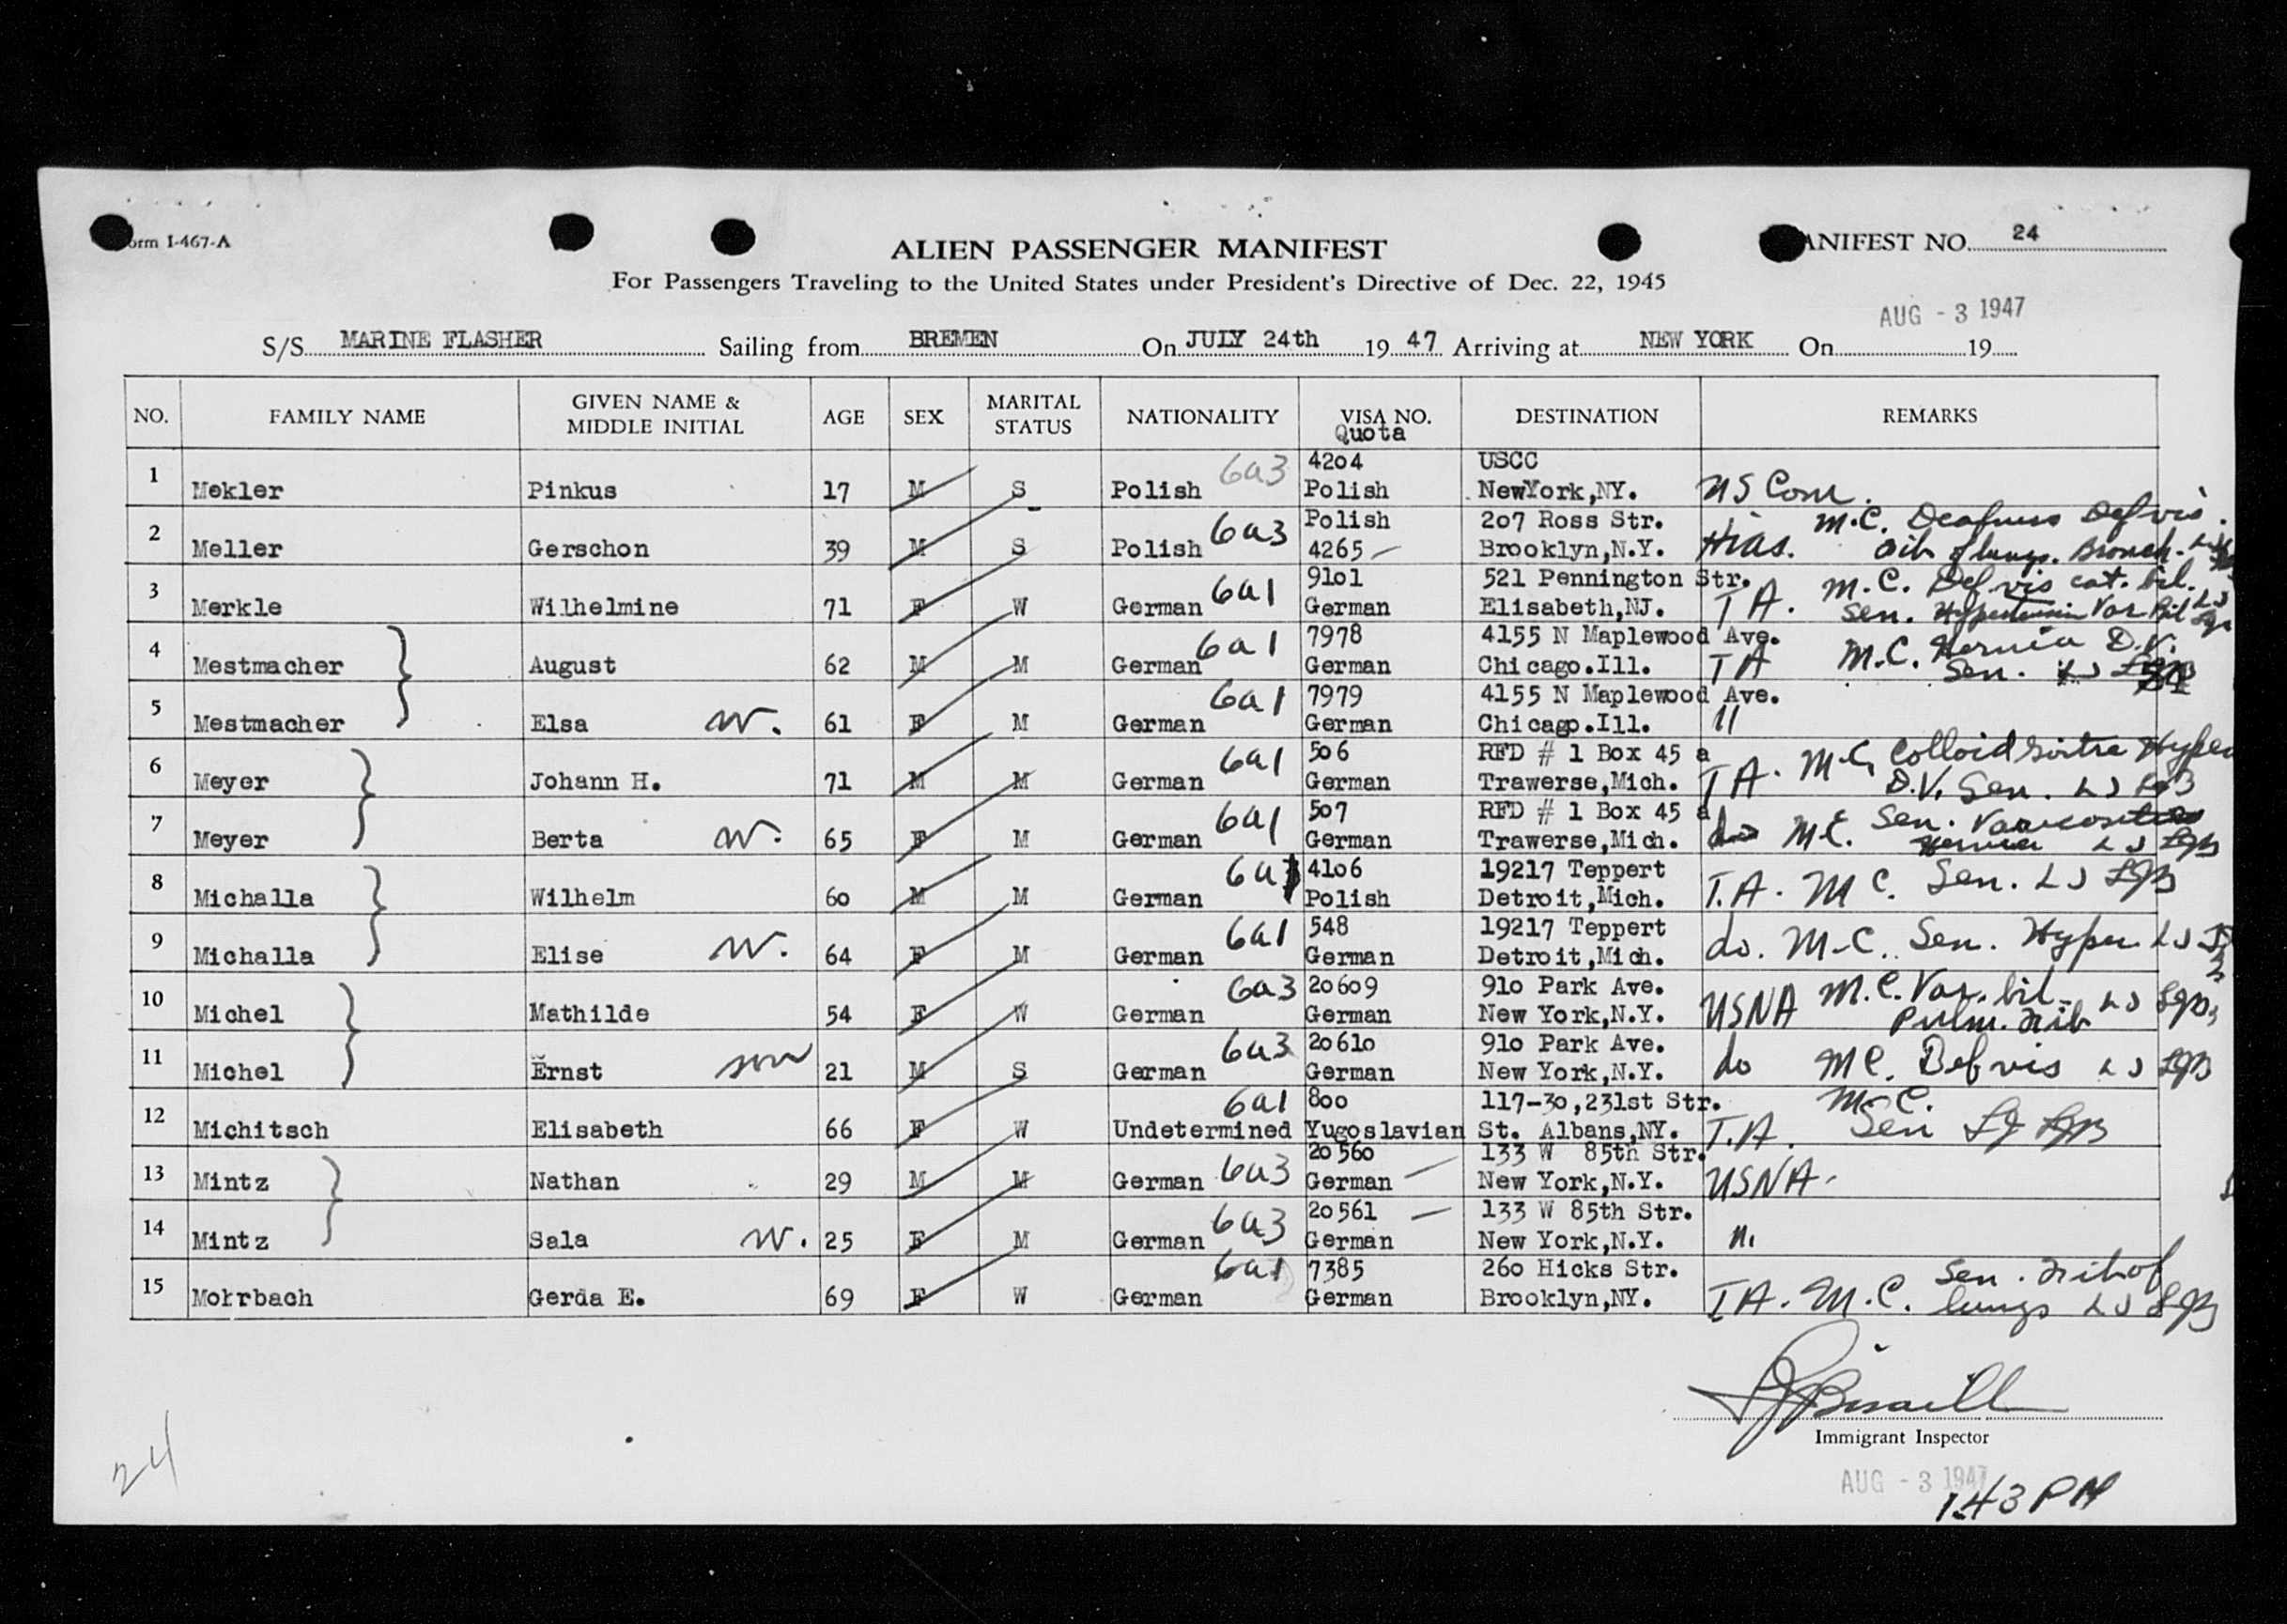 Form I-467-A
MANIFEST NO. 24
ALIEN PASSENGER MANIFEST
For Passengers Traveling to the United States under President's Directive of Dec. 22, 1945
AUG - 3 1947
S/S MARINE FLASHER Sailing from BREMEN On JULY 24th 19 47 Arriving at NEW YORK On 19
NO. FAMILY NAME GIVEN NAME & MIDDLE INITIAL AGE SEX MARITAL STATUS NATIONALITY VISA NO. Quota DESTINATION REMARKS
6a3 4204 USCC
1 Mekler Pinkus 17 M S Polish Polish NewYork,NY. US Com.
6a3 Polish 207 Ross Str. M.C. Deafness Def vis.
2 Meller Gerschon 39 M S Polish 4265 Brooklyn,N.Y. Hias. of lungs.
6a1 9101 521 Pennington Str. M.C. Def vis cat. bil.
3 Merkle Wilhelmine 71 F W German German Elisabeth,NJ. TA. Sen. Hypertension Var Bil
6a1 7978 4155 N Maplewood Ave. M.C. Hernia D.V.
4 Mestmacher August 62 M M German German Chicago.Ill. TA Sen.
6a1 7979 4155 N Maplewood Ave.
5 Mestmacher Elsa W. 61 F M German German Chicago.Ill. "
6a1 506 RFD # 1 Box 45 a M.C. Colloid Goitre Hyper
6 Meyer Johann H. 71 M M German German Trawerse,Mich. TA. D.V. Sen.
6a1 507 RFD # 1 Box 45 a
7 Meyer Berta W. 65 F M German German Trawerse,Mich. do M.C. Sen.
6a3 4106 19217 Teppert
8 Michalla Wilhelm 60 M M German Polish Detroit,Mich. T.A. M.C. Sen.
6a1 548 19217 Teppert
9 Michalla Elise W. 64 F M German German Detroit,Mich. do. M.C. Sen. Hyper.
6a3 20609 910 Park Ave. M.C. Var. bil.
10 Michel Mathilde 54 F W German German New York,N.Y. USNA Pulm. Fib
6a3 20610 910 Park Ave.
11 Michel Ernst son 21 M S German German New York,N.Y. do M.C. Def vis
6a1 800 117-30,231st Str. M.C.
12 Michitsch Elisabeth 66 F W Undetermined Yugoslavian St. Albans,NY. T.A. Sen
20560 133 W 85th Str.
13 Mintz Nathan 29 M M German 6a3 German New York,N.Y. USNA.
6a3 20561 133 W 85th Str.
14 Mintz Sala W. 25 F M German German New York,N.Y. "
6a1 7385 260 Hicks Str. Sen. Fib of
15 Mohrbach Gerda E. 69 F W German German Brooklyn,NY. TA. M.C. lungs
Immigrant Inspector
AUG - 3 1947
1.43 PM
24